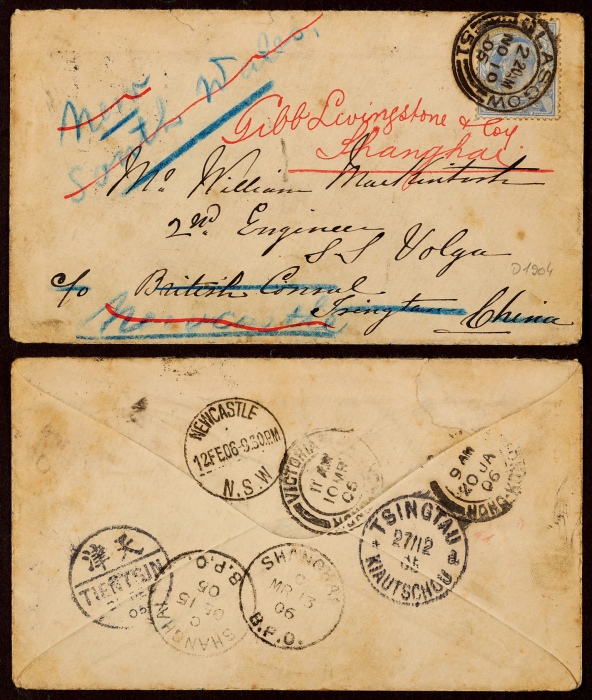 New
South Wales.
Gibb Livingstone & Coy
Shanghai.
Mr William Mackintosh
2nd Engineer
S S Volga
c/o British Consul
Tsingtau China
Newcastle
D1904
GLASGOW
2 20 M
NO 10
05
NEWCASTLE
12 FE 06-9.30PM
N.S.W
VICTORIA
11 AM
10 MR
06
HONG KONG
9 AM
20 JA
06
HONG KONG
TSINGTAU
27/12
05
a
KIAUTSCHOU
天津
TIENTSIN
SHANGHAI
C
DE 15
05
B.P.O.
SHANGHAI
MR 13
06
B.P.O.